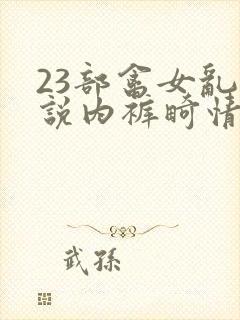 23部畲女乱
説内裤畸情
武孫